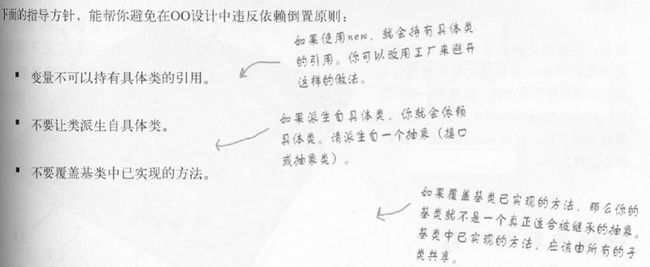 下面的指导方针，能帮你避免在OO设计中违反依赖倒置原则：
如果使用new，就会持有具体类
的引用。你可以改用工厂来避开
这样的做法。
▪ 变量不可以持有具体类的引用。
如果派生自具体类，你就会依赖
具体类。请派生自一个抽象（接口
或抽象类）。
▪ 不要让类派生自具体类。
▪ 不要覆盖基类中已实现的方法。
如果覆盖基类已实现的方法，那么你的
基类就不是一个真正适合被继承的抽象。
基类中已实现的方法，应该由所有的子
类共享。